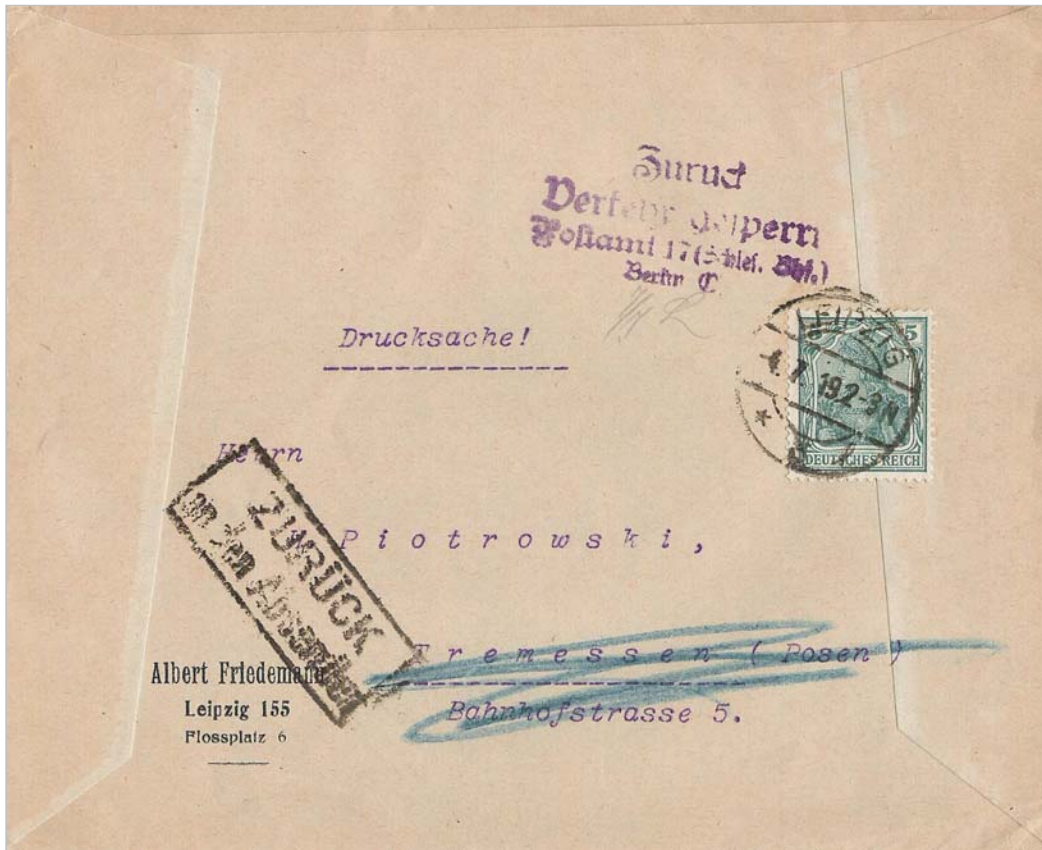 Zurück
Verkehr gesperrt
Postamt 17 (Schles. Bhf.)
Berlin C
Drucksache!
LEIPZIG
4.7.19 2-3N
5
DEUTSCHES REICH
Herrn
Piotrowski,
ZURÜCK
an den Absender
Tremessen (Posen)
Bahnhofstrasse 5.
Albert Friedemann
Leipzig 155
Flossplatz 6